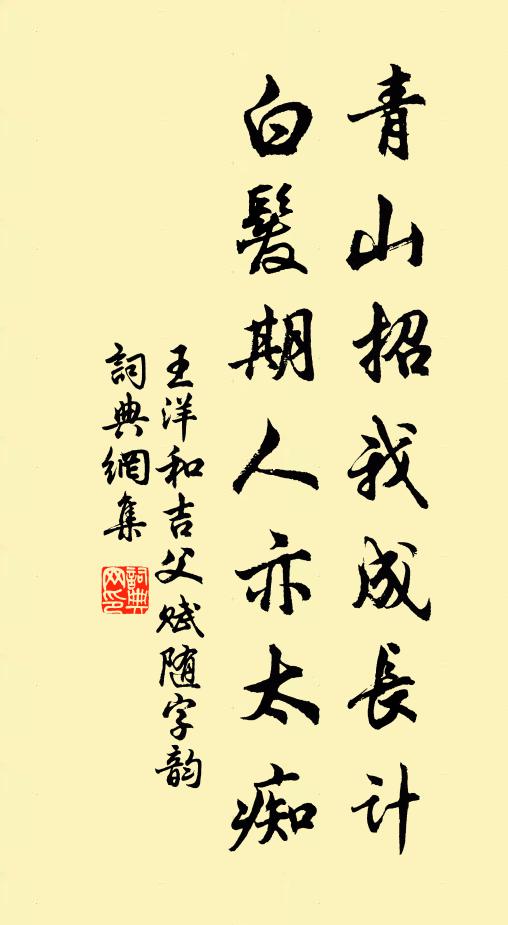 青山招我成長計
白髮期人亦太痴
王洋和吉父赋随字韵
詞典網集
詞典網印